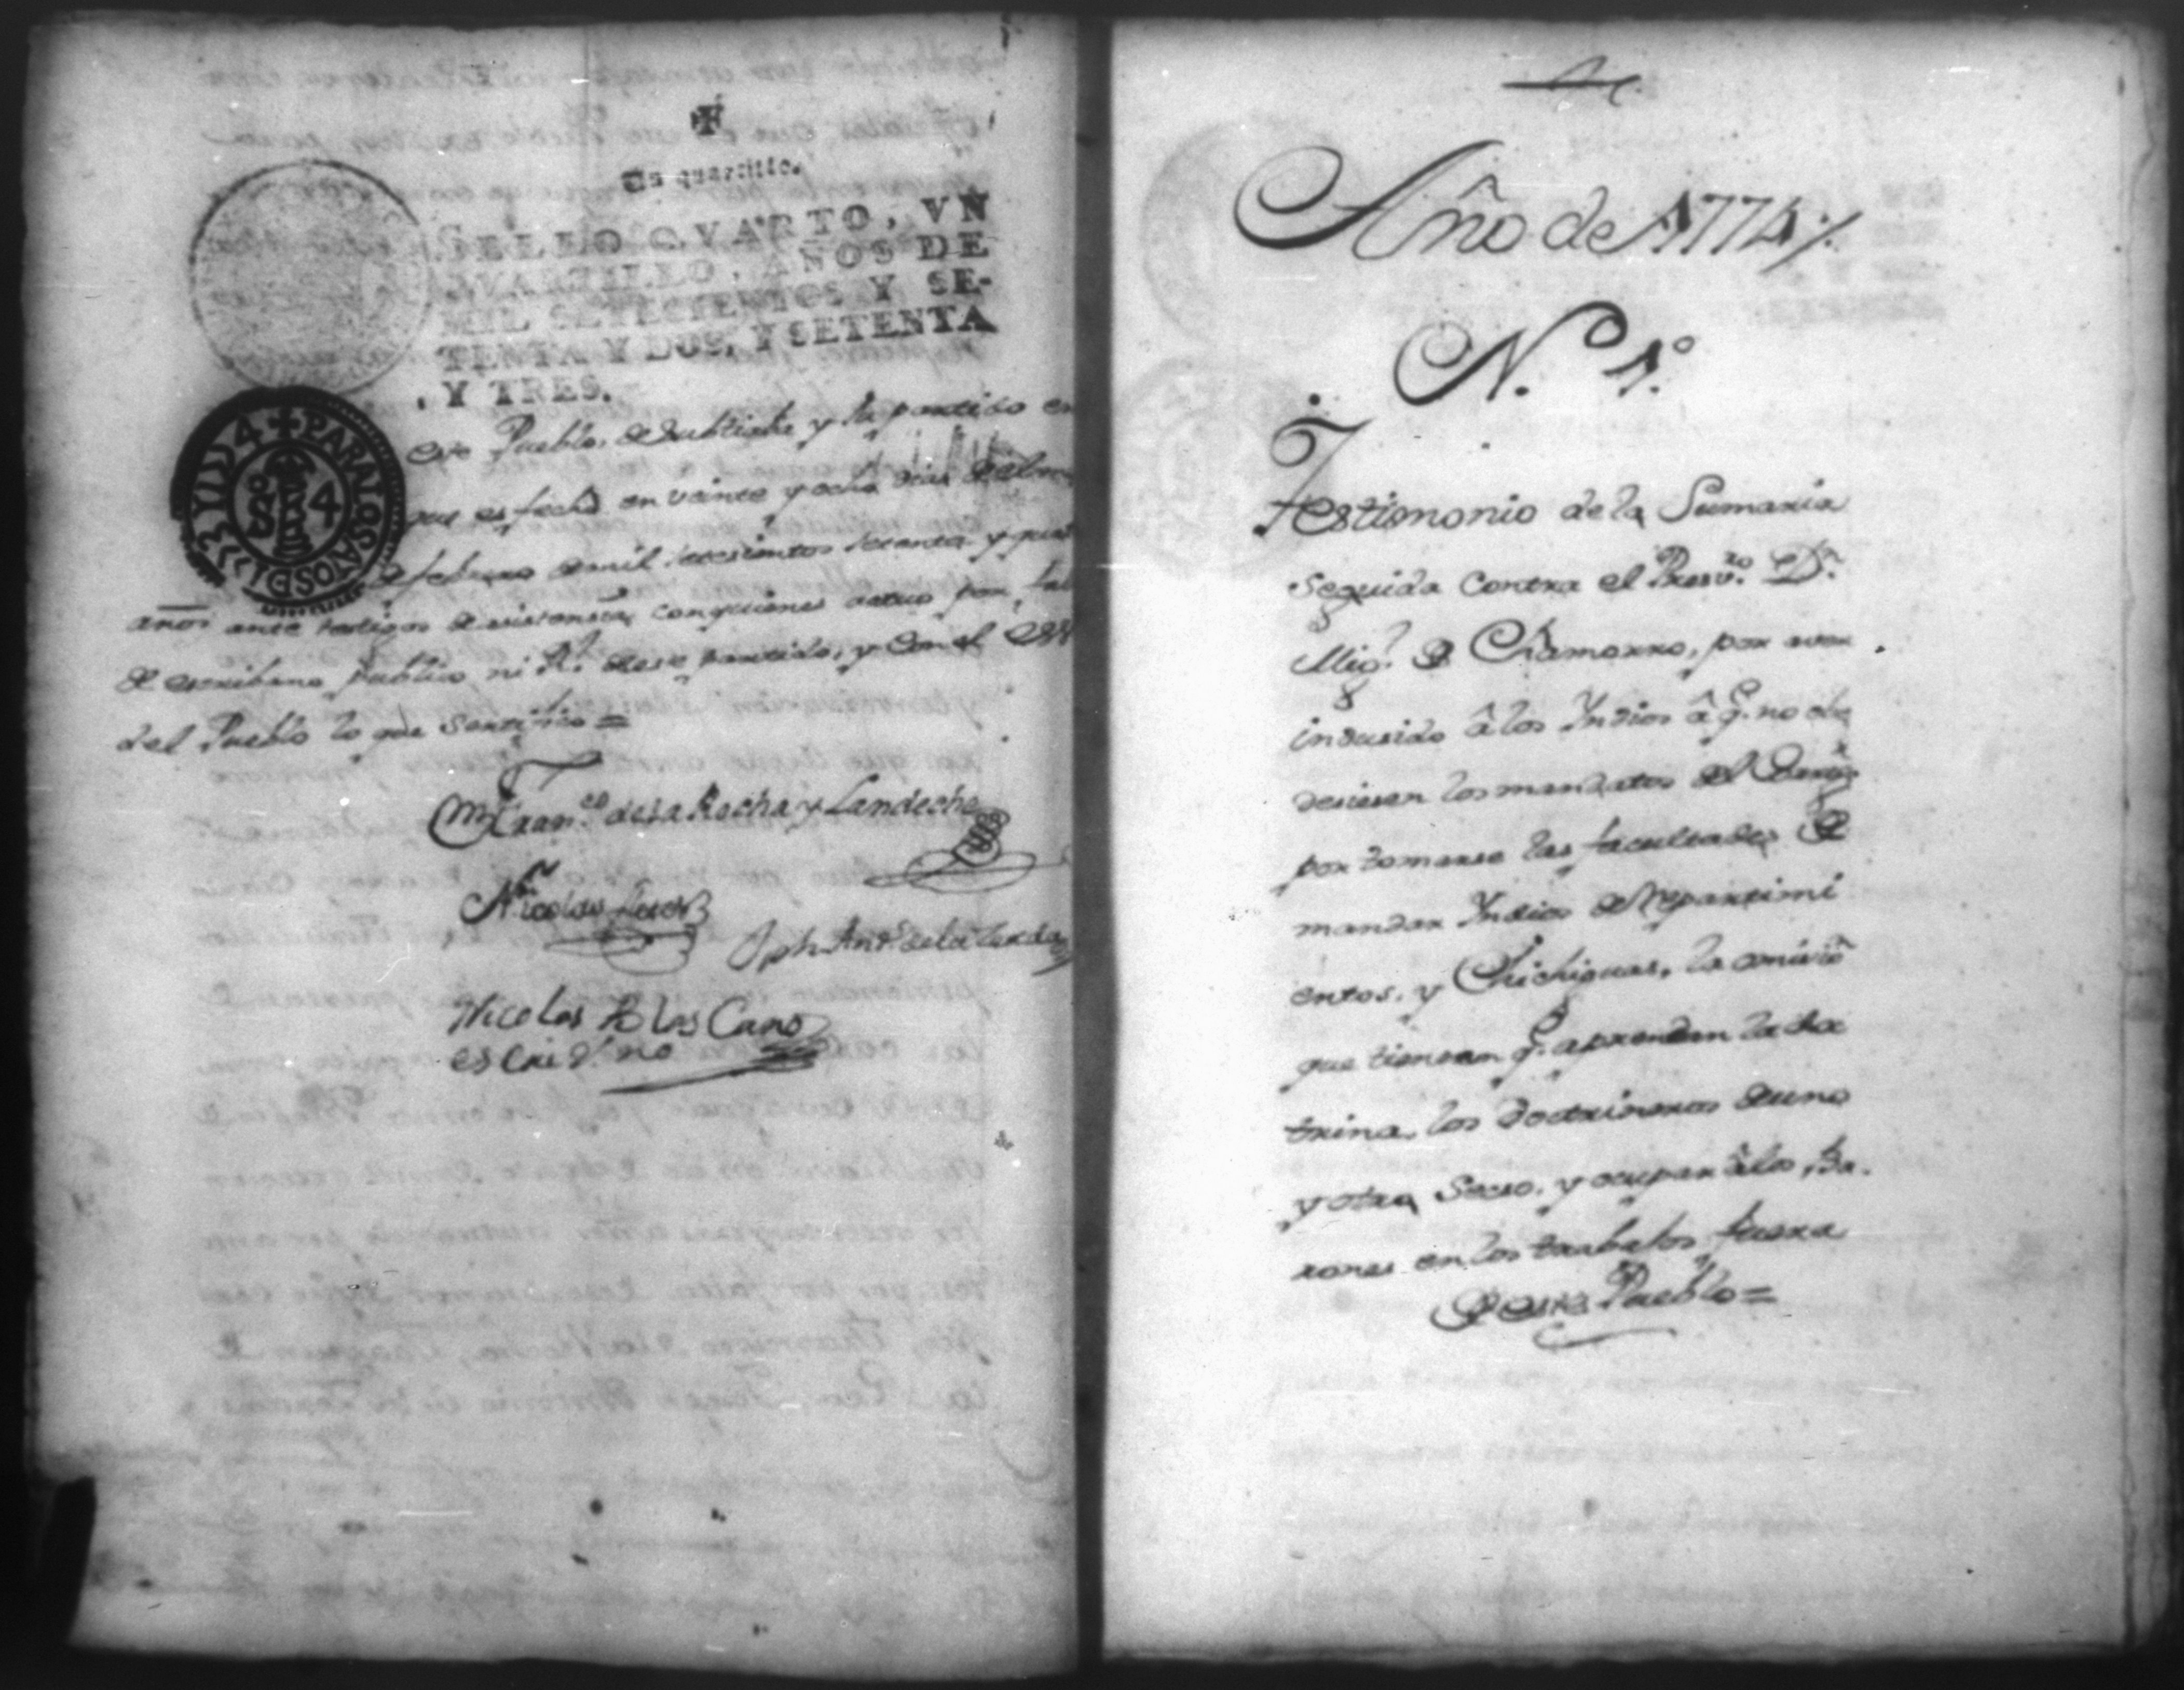 Un quartillo.
SELLO QVARTO, VN
QVARTILLO, AÑOS DE
MIL SETECIENTOS Y SE-
TENTA Y DOS, Y SETENTA
Y TRES.
PARA LOS AÑOS DE 1773 Y 1774
S 4
este Pueblo, de Subtiaba y su partido en
que es fecho en veinte y ocho dias del mes
de febrero de mil setesientos setenta y quat
años ante testigos de asistensia con quienes actuo por falta
de escribano publico ni Rl. de este partido, y con el
del Pueblo lo que Sertifico =
Fran.co de la Rocha y Landecho
Nicolas
Jph Ant.o de la Cerda
Nicolas Blas Cano
escriv.no
Año de 1774
N.o 1.o
Testimonio de la Sumaria
Seguida Contra el Presv.ro D.n
Mig.l de Chamorro, por aver
indusido â los Indios â q.e no obe
desiesen los mandatos del
por tomarse las facultades de
mandar Indios de Repartimi
entos, y Chichiguas, la omision
que tienen q.e aprendan la Doc
trina, los Doctrineros de uno
y otro Secso, y ocupar â los Va
rones en los trabajos fuera
de este Pueblo =